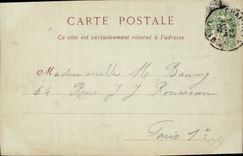 CARTE POSTALE
Ce côté est exclusivement réservé à l'adresse
Mademoiselle M.
64 Rue J J Rousseau
Paris 1er